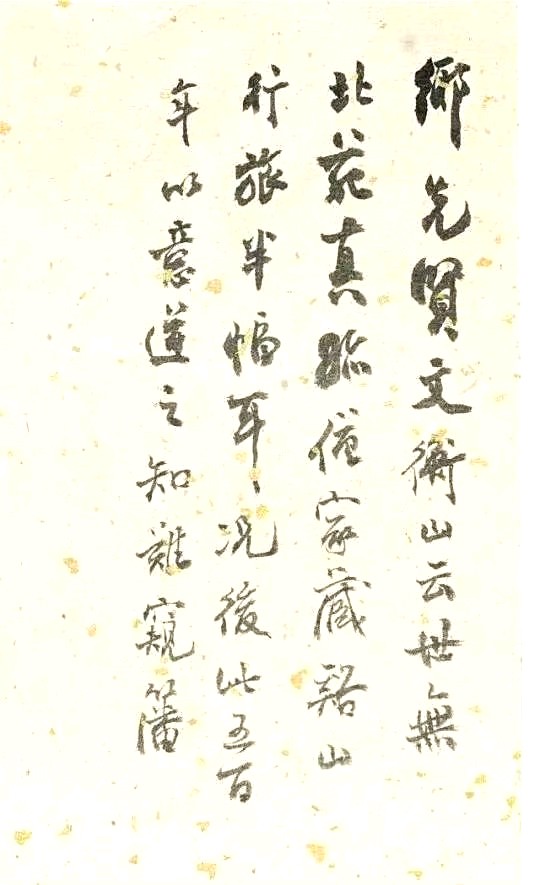 鄉先賢文衡山云世無
北苑真跡僅家藏谿山
行旅半幅耳況後此五百
年以意造之知難窺籓